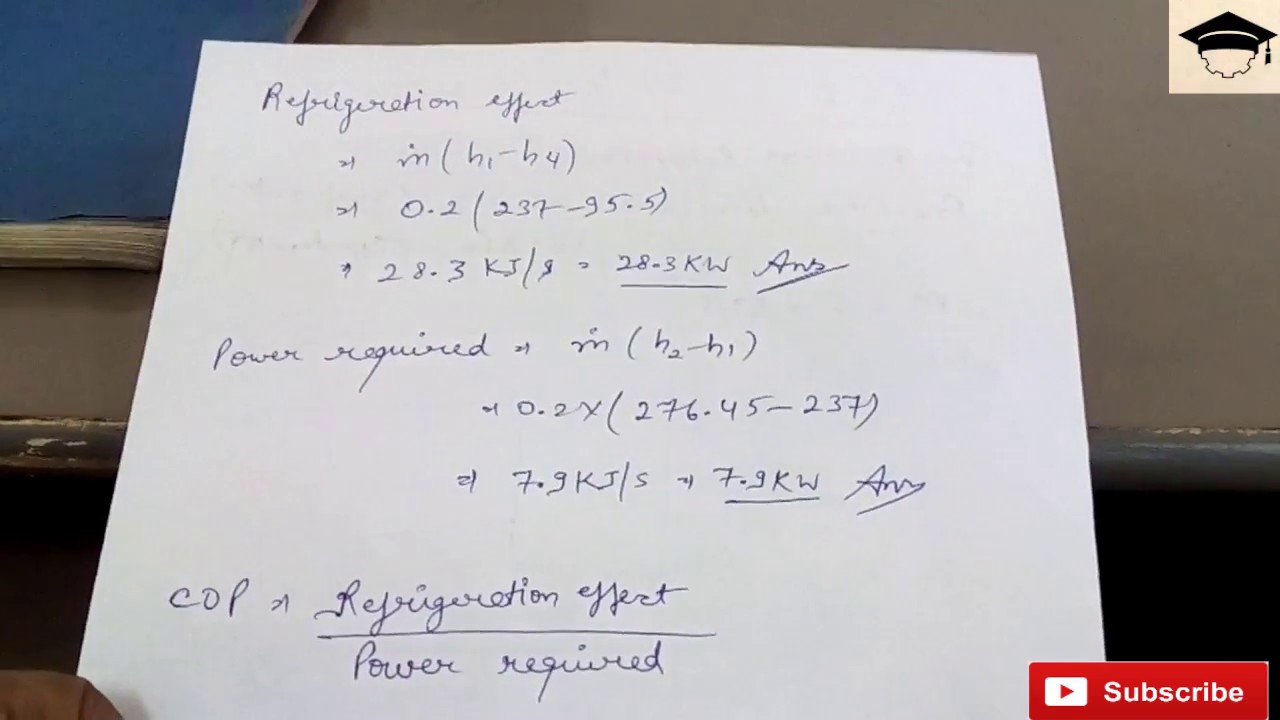 Refrigeretion effect
⇒ ṁ(h₁-h4)
⇒ 0.2(237-95.5)
⇒ 28.3 KJ/s = 28.3KW Ans
Power required ⇒ ṁ(h₂-h₁)
⇒ 0.2×(276.45-237)
⇒ 7.9KJ/s ⇒ 7.9KW Ans
COP ⇒ Refrigeretion effect
Power required
Subscribe